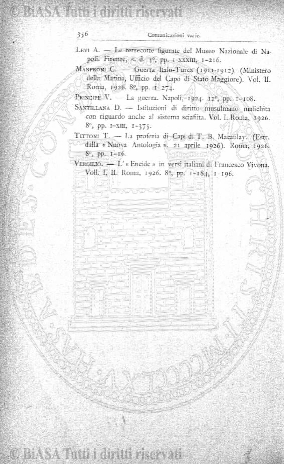 © BiASA Tutti i diritti riservati
336 Comunicazioni varie
LEVI A. — Le terrecotte figurate del Museo Nazionale di Na-
poli. Firenze, s. d. 3°, pp. XXXIII, 1-216.
MANFRONI C. — Guerra Italo-Turca (1911-1912). (Ministero
della Marina, Ufficio del Capo di Stato Maggiore). Vol. II.
Roma, 1926. 8°, pp. 1 274.
PRINCIPE V. — La guerra. Napoli, 1924 12°, pp. 1-108.
SANTILLANA D. — Istituzioni di diritto musulmano malichita
con riguardo anche al sistema sciafiita. Vol. I. Roma, 1926.
8°, pp. I-XIII, 1-375.
TITTONI T. — La profezia di Capi di T. B. Macaulay. (Estr.
dalla « Nuova Antologia ». 21 aprile 1926). Roma, 1926.
8°, pp. 1-16.
VERGILIO. — L'« Eneide » in versi italiani di Francesco Vivona.
Voll. I, II. Roma, 1926. 8°, pp. 1-264, 1 196.
© BiASA Tutti i diritti riservati